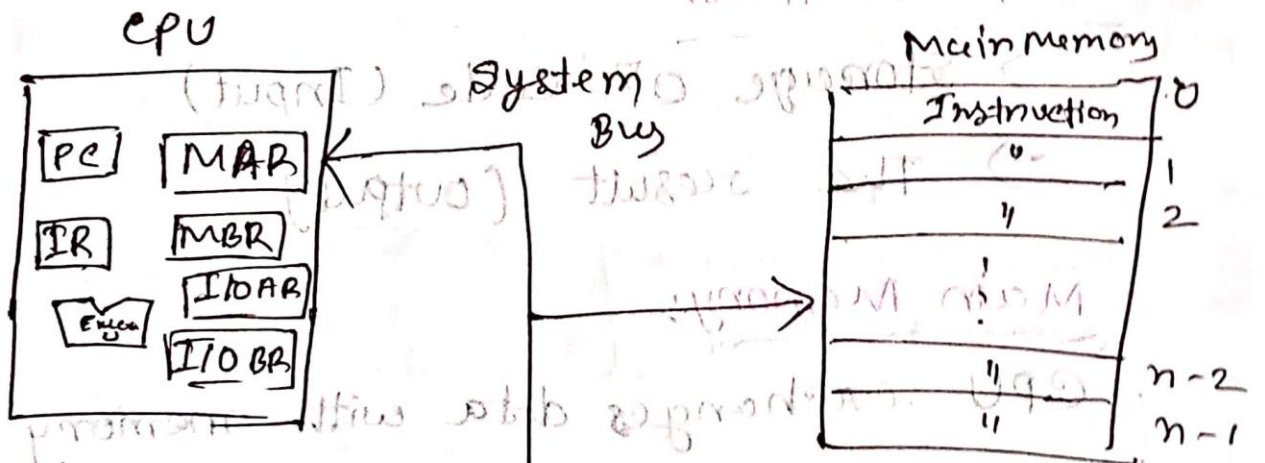 CPU
System
Bus
Main Memory
PC
MAR
IR
MBR
I/OAR
I/O BR
Instruction 0
" 1
" 2
" n-2
" n-1